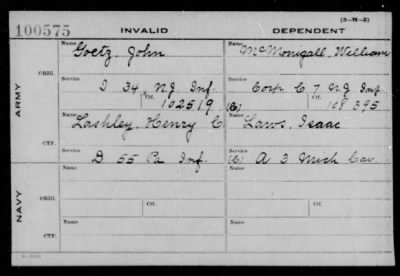 (3-M-3)
100575 INVALID DEPENDENT
Name Goetz, John
McMonigall, William
ARMY
ORIG.
Service I 34 NJ Inf.
Ctf. 102519
Corp C 7 NJ Inf
(C) 108395
Name Lashley, Henry C
Laws, Isaac
CTF.
Service D 55 Pa Inf.
Service (C) A 3 Mich Cav
NAVY
Name
Name
ORIG.
Service
Ctf.
Service
Ctf.
Name
Name
CTF.